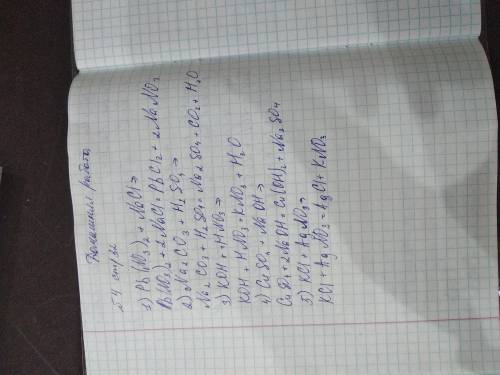 Домашняя работа
1) Pb(NO3)2 + NaCl →
Pb(NO3)2 + 2NaCl = PbCl2 + 2NaNO3
2) Na2CO3 + H2SO4 →
Na2CO3 + H2SO4 = Na2SO4 + CO2 + H2O
3) KOH + HNO3 →
KOH + HNO3 = KNO3 + H2O
4) CuSO4 + NaOH →
CuSO4 + 2NaOH = Cu(OH)2 + Na2SO4
5) KCl + AgNO3 →
KCl + AgNO3 = AgCl + KNO3